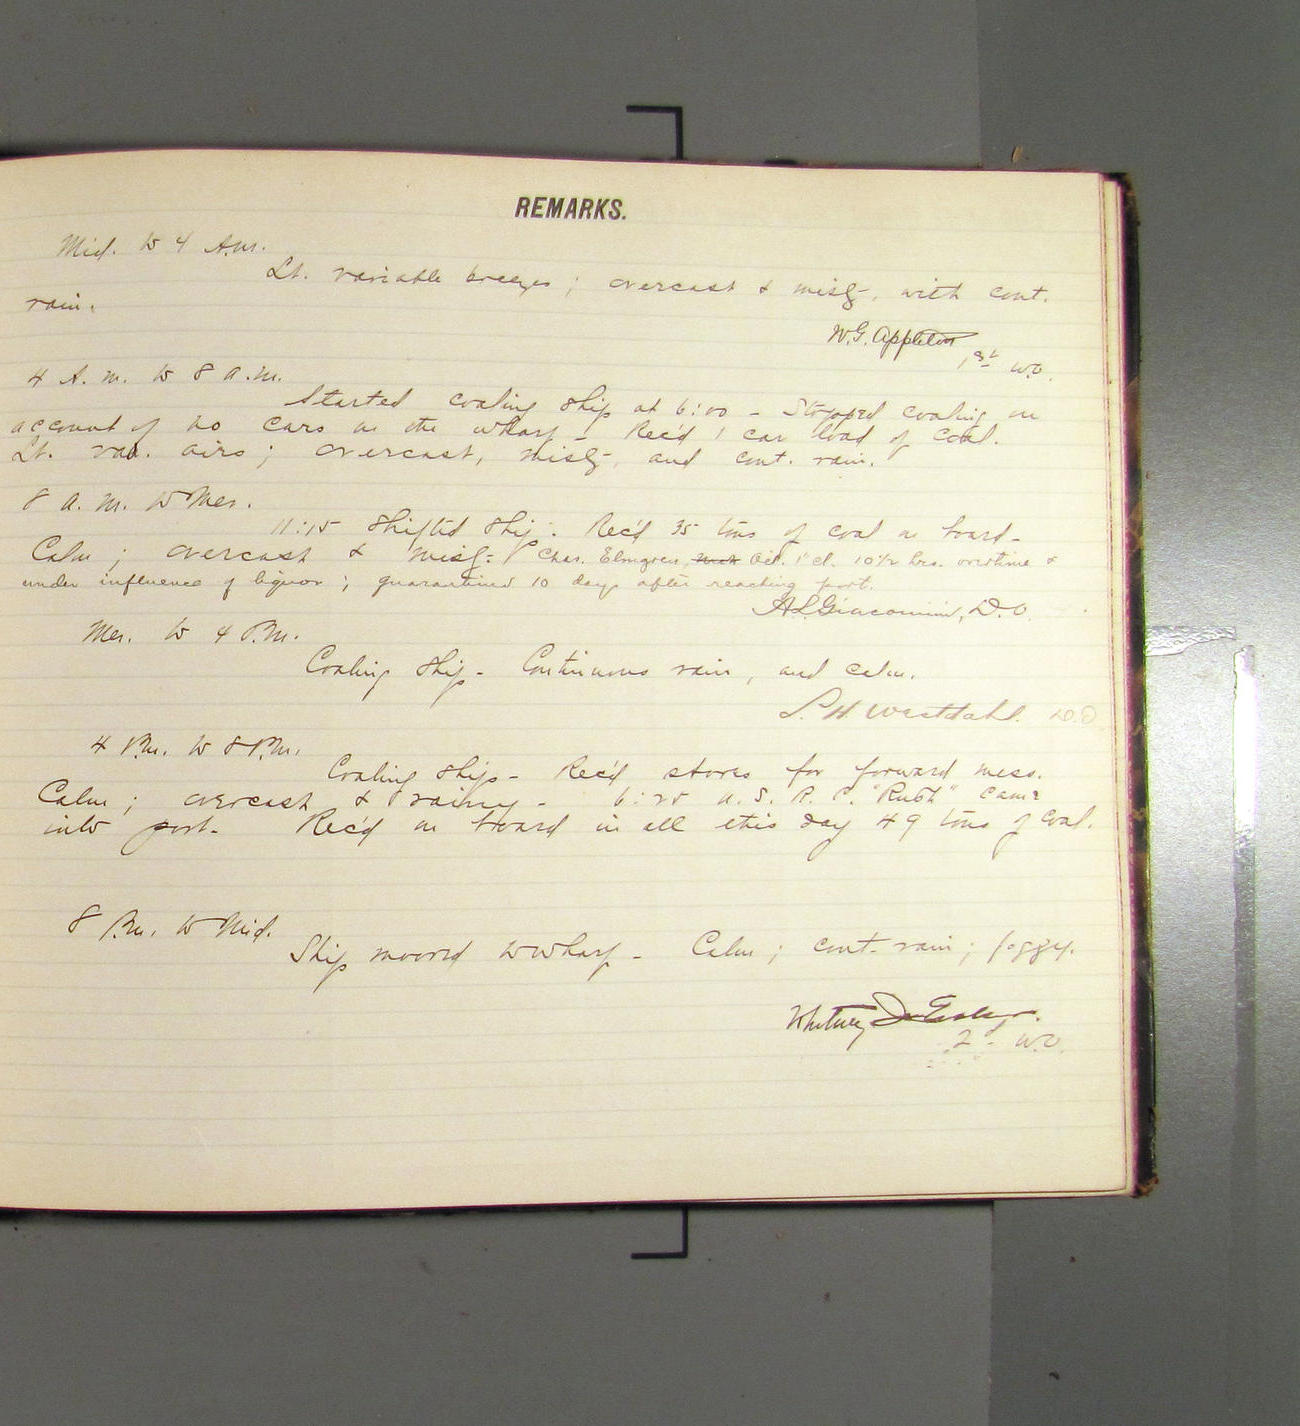 REMARKS.
Mid. to 4 A.m.
Lt. variable breezes; overcast & misty, with cont.
rain.
W.G. Appleton
1st W.O.
4 A.m. to 8 a.m.
Started coaling ship at 6:00 - Stopped coaling on
account of no cars on the wharf - Rec'd 1 car load of coal.
Lt. var. airs; overcast, misty, and cont. rain.
8 a.m. to Mer.
11:15 Shifted Ship. Rec'd 35 tons of coal on board -
Calm; overcast & misty - Chas. Elmgren, Oil. 1" cl. 10 1/2 hrs. overtime &
under influence of liquor; quarantined 10 days after reaching port.
A.L. Giacomini, D.O.
Mer. to 4 P.m.
Coaling ship - Continuous rain, and calm.
S. H. Westdahl. D.O
4 P.m. to 8 P.m.
Coaling ship - Rec'd stores for forward mess.
Calm; overcast & rainy - 6:25 U.S.R.C. "Rush" came
into port - Rec'd on board in all this day 49 tons of coal.
8 P.m. to Mid.
Ship moored to wharf - Calm; cont- rain; foggy.
Whitney
2d W.O.